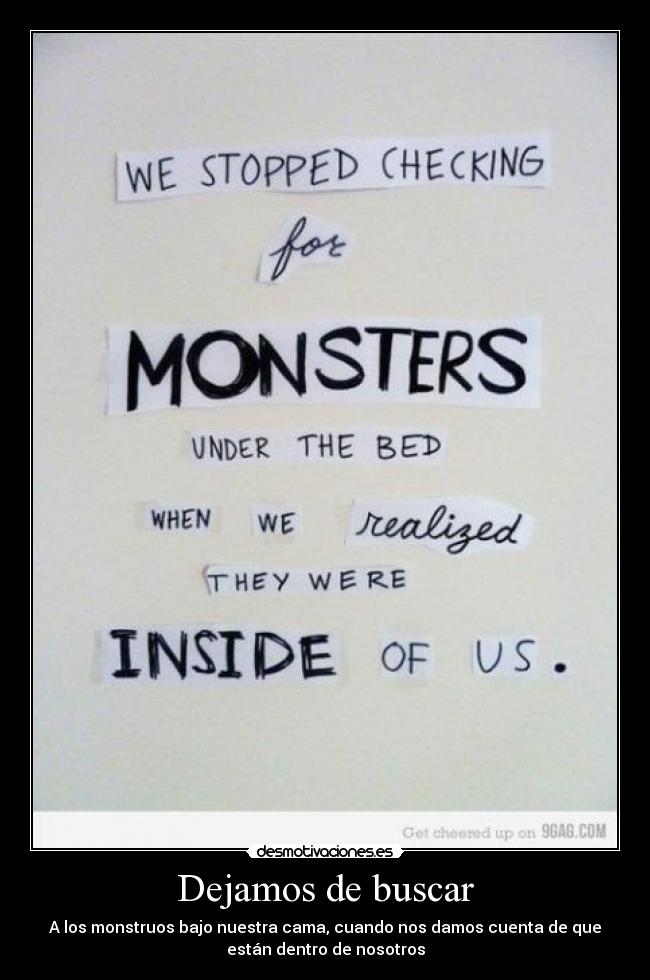 WE STOPPED CHECKING
for
MONSTERS
UNDER THE BED
WHEN WE realized
THEY WERE
INSIDE OF US.
Get cheered up on 9GAG.COM
desmotivaciones.es
Dejamos de buscar
A los monstruos bajo nuestra cama, cuando nos damos cuenta de que
están dentro de nosotros